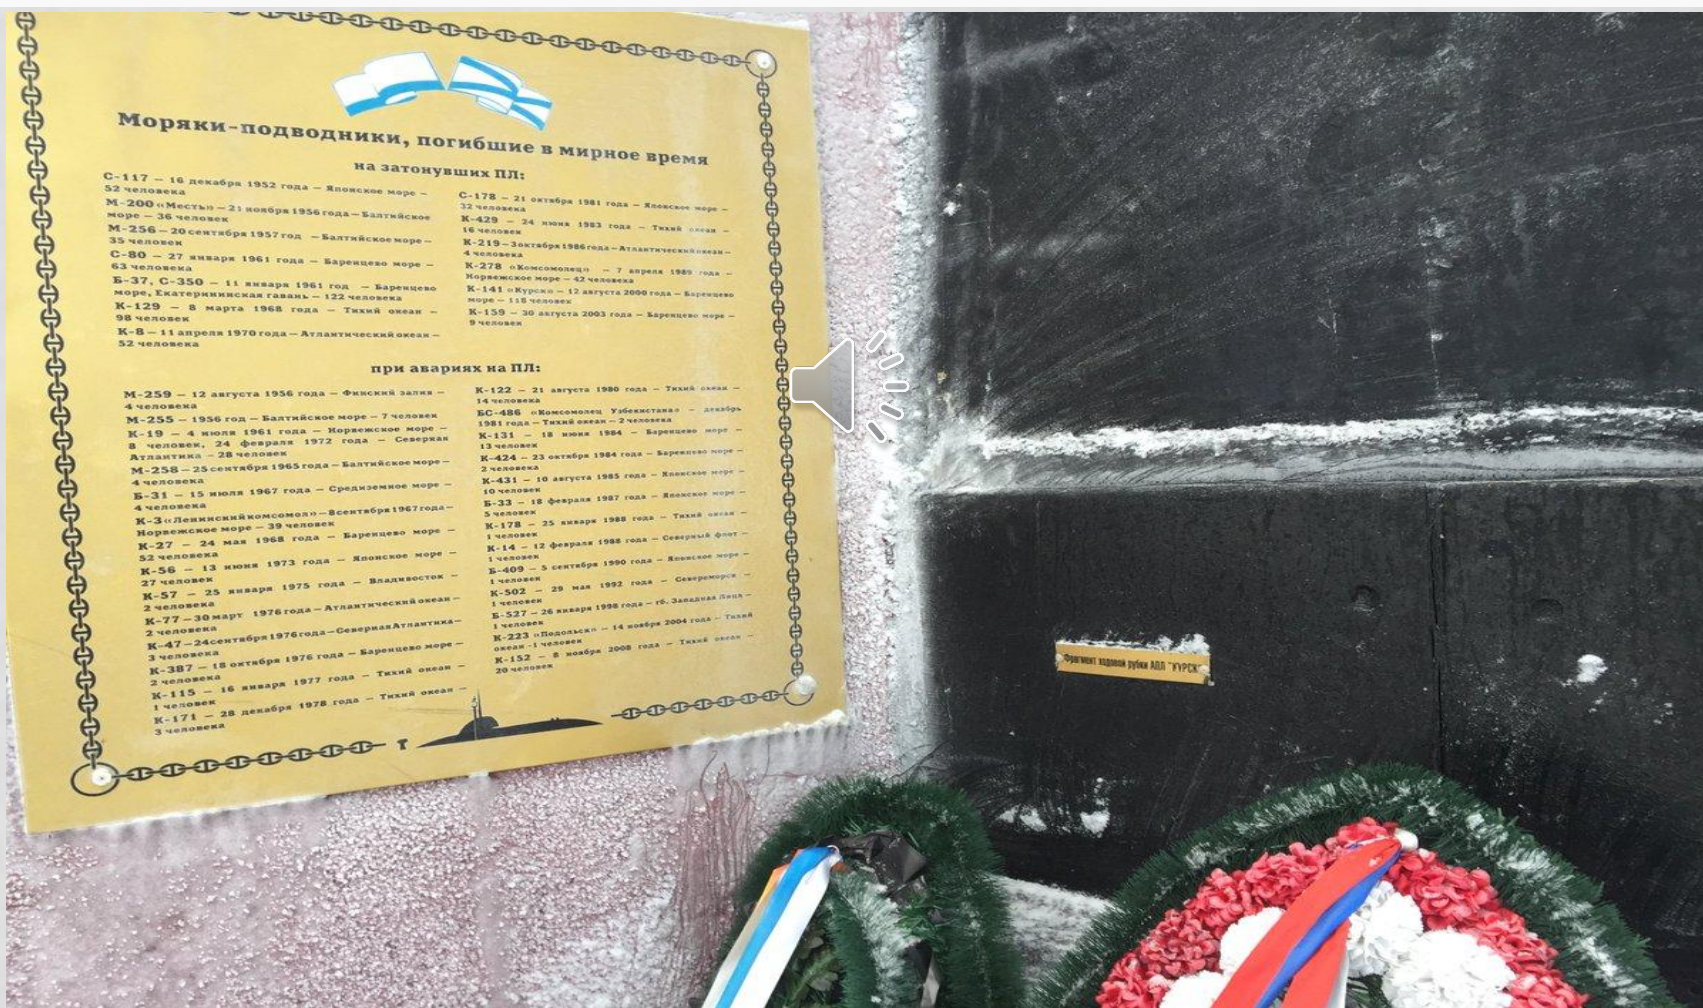 Моряки-подводники, погибшие в мирное время
на затонувших ПЛ:
С-117 – 16 декабря 1952 года – Японское море –
52 человека
М-200 «Месть» – 21 ноября 1956 года – Балтийское
море – 36 человек
М-256 – 20 сентября 1957 год – Балтийское море –
35 человек
С-80 – 27 января 1961 года – Баренцево море –
63 человека
Б-37, С-350 – 11 января 1961 год – Баренцево
море, Екатерининская гавань – 122 человека
К-129 – 8 марта 1968 года – Тихий океан –
98 человек
К-8 – 11 апреля 1970 года – Атлантический океан –
52 человека
С-178 – 21 октября 1981 года – Японское море –
32 человека
К-429 – 24 июня 1983 года – Тихий океан –
16 человек
К-219 – 3 октября 1986 года – Атлантический океан –
4 человека
К-278 «Комсомолец» – 7 апреля 1989 года –
Норвежское море – 42 человека
К-141 «Курск» – 12 августа 2000 года – Баренцево
море – 118 человек
К-159 – 30 августа 2003 года – Баренцево море –
9 человек
при авариях на ПЛ:
М-259 – 12 августа 1956 года – Финский залив –
4 человека
М-255 – 1956 год – Балтийское море – 7 человек
К-19 – 4 июля 1961 года – Норвежское море –
8 человек, 24 февраля 1972 года – Северная
Атлантика – 28 человек
М-258 – 25 сентября 1965 года – Балтийское море –
4 человека
Б-31 – 15 июля 1967 года – Средиземное море –
4 человека
К-3 «Ленинский комсомол» – 8 сентября 1967 года –
Норвежское море – 39 человек
К-27 – 24 мая 1968 года – Баренцево море –
52 человека
К-56 – 13 июня 1973 года – Японское море –
27 человек
К-57 – 25 января 1975 года – Владивосток –
2 человека
К-77 – 30 март 1976 года – Атлантический океан –
2 человека
К-47 – 24 сентября 1976 года – Северная Атлантика –
3 человека
К-387 – 18 октября 1976 года – Баренцево море –
2 человека
К-115 – 16 января 1977 года – Тихий океан –
1 человек
К-171 – 28 декабря 1978 года – Тихий океан –
3 человека
К-122 – 21 августа 1980 года – Тихий океан –
14 человек
БС-486 «Комсомолец Узбекистана» – декабрь
1981 года – Тихий океан – 2 человека
К-131 – 18 июня 1984 – Баренцево море –
13 человек
К-424 – 23 октября 1984 года – Баренцево море –
2 человека
К-431 – 10 августа 1985 года – Японское море –
10 человек
Б-33 – 18 февраля 1987 года – Японское море –
5 человек
К-178 – 25 января 1988 года – Тихий океан –
1 человек
К-14 – 12 февраля 1988 года – Северный флот –
1 человек
Б-409 – 5 сентября 1990 года – Японское море –
1 человек
К-502 – 29 мая 1992 года – Североморск –
1 человек
Б-527 – 26 января 1998 года – гб. Западная Лица –
1 человек
К-223 «Подольск» – 14 ноября 2004 года – Тихий
океан – 1 человек
К-152 – 8 ноября 2008 года – Тихий океан –
20 человек
Фрагмент ходовой рубки АПЛ "КУРСК"